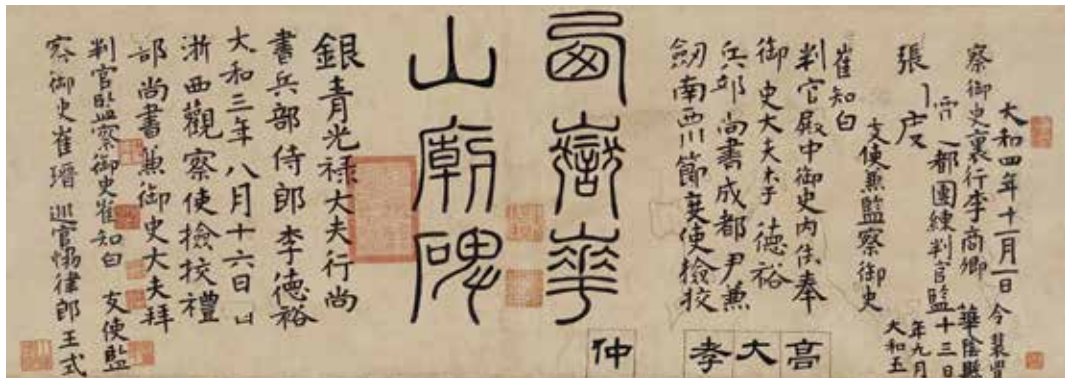 大和四年十一月一日
察御史裏行李商卿 華陰縣
都團練判官監 十三日
張 年九月
支使兼監察御史 大和五
崔知白
判官殿中御史內供奉
御史大夫李德裕
兵部尚書成都尹兼
劒南西川節度使檢校
高大孝
西嶽華
仲
山廟碑
銀青光祿大夫行尚
書兵部侍郎李德裕
大和三年八月十六日
浙西觀察使檢校禮
部尚書兼御史大夫拜
判官監察御史崔知白 支使監
察御史崔瑨 巡官協律郎王式